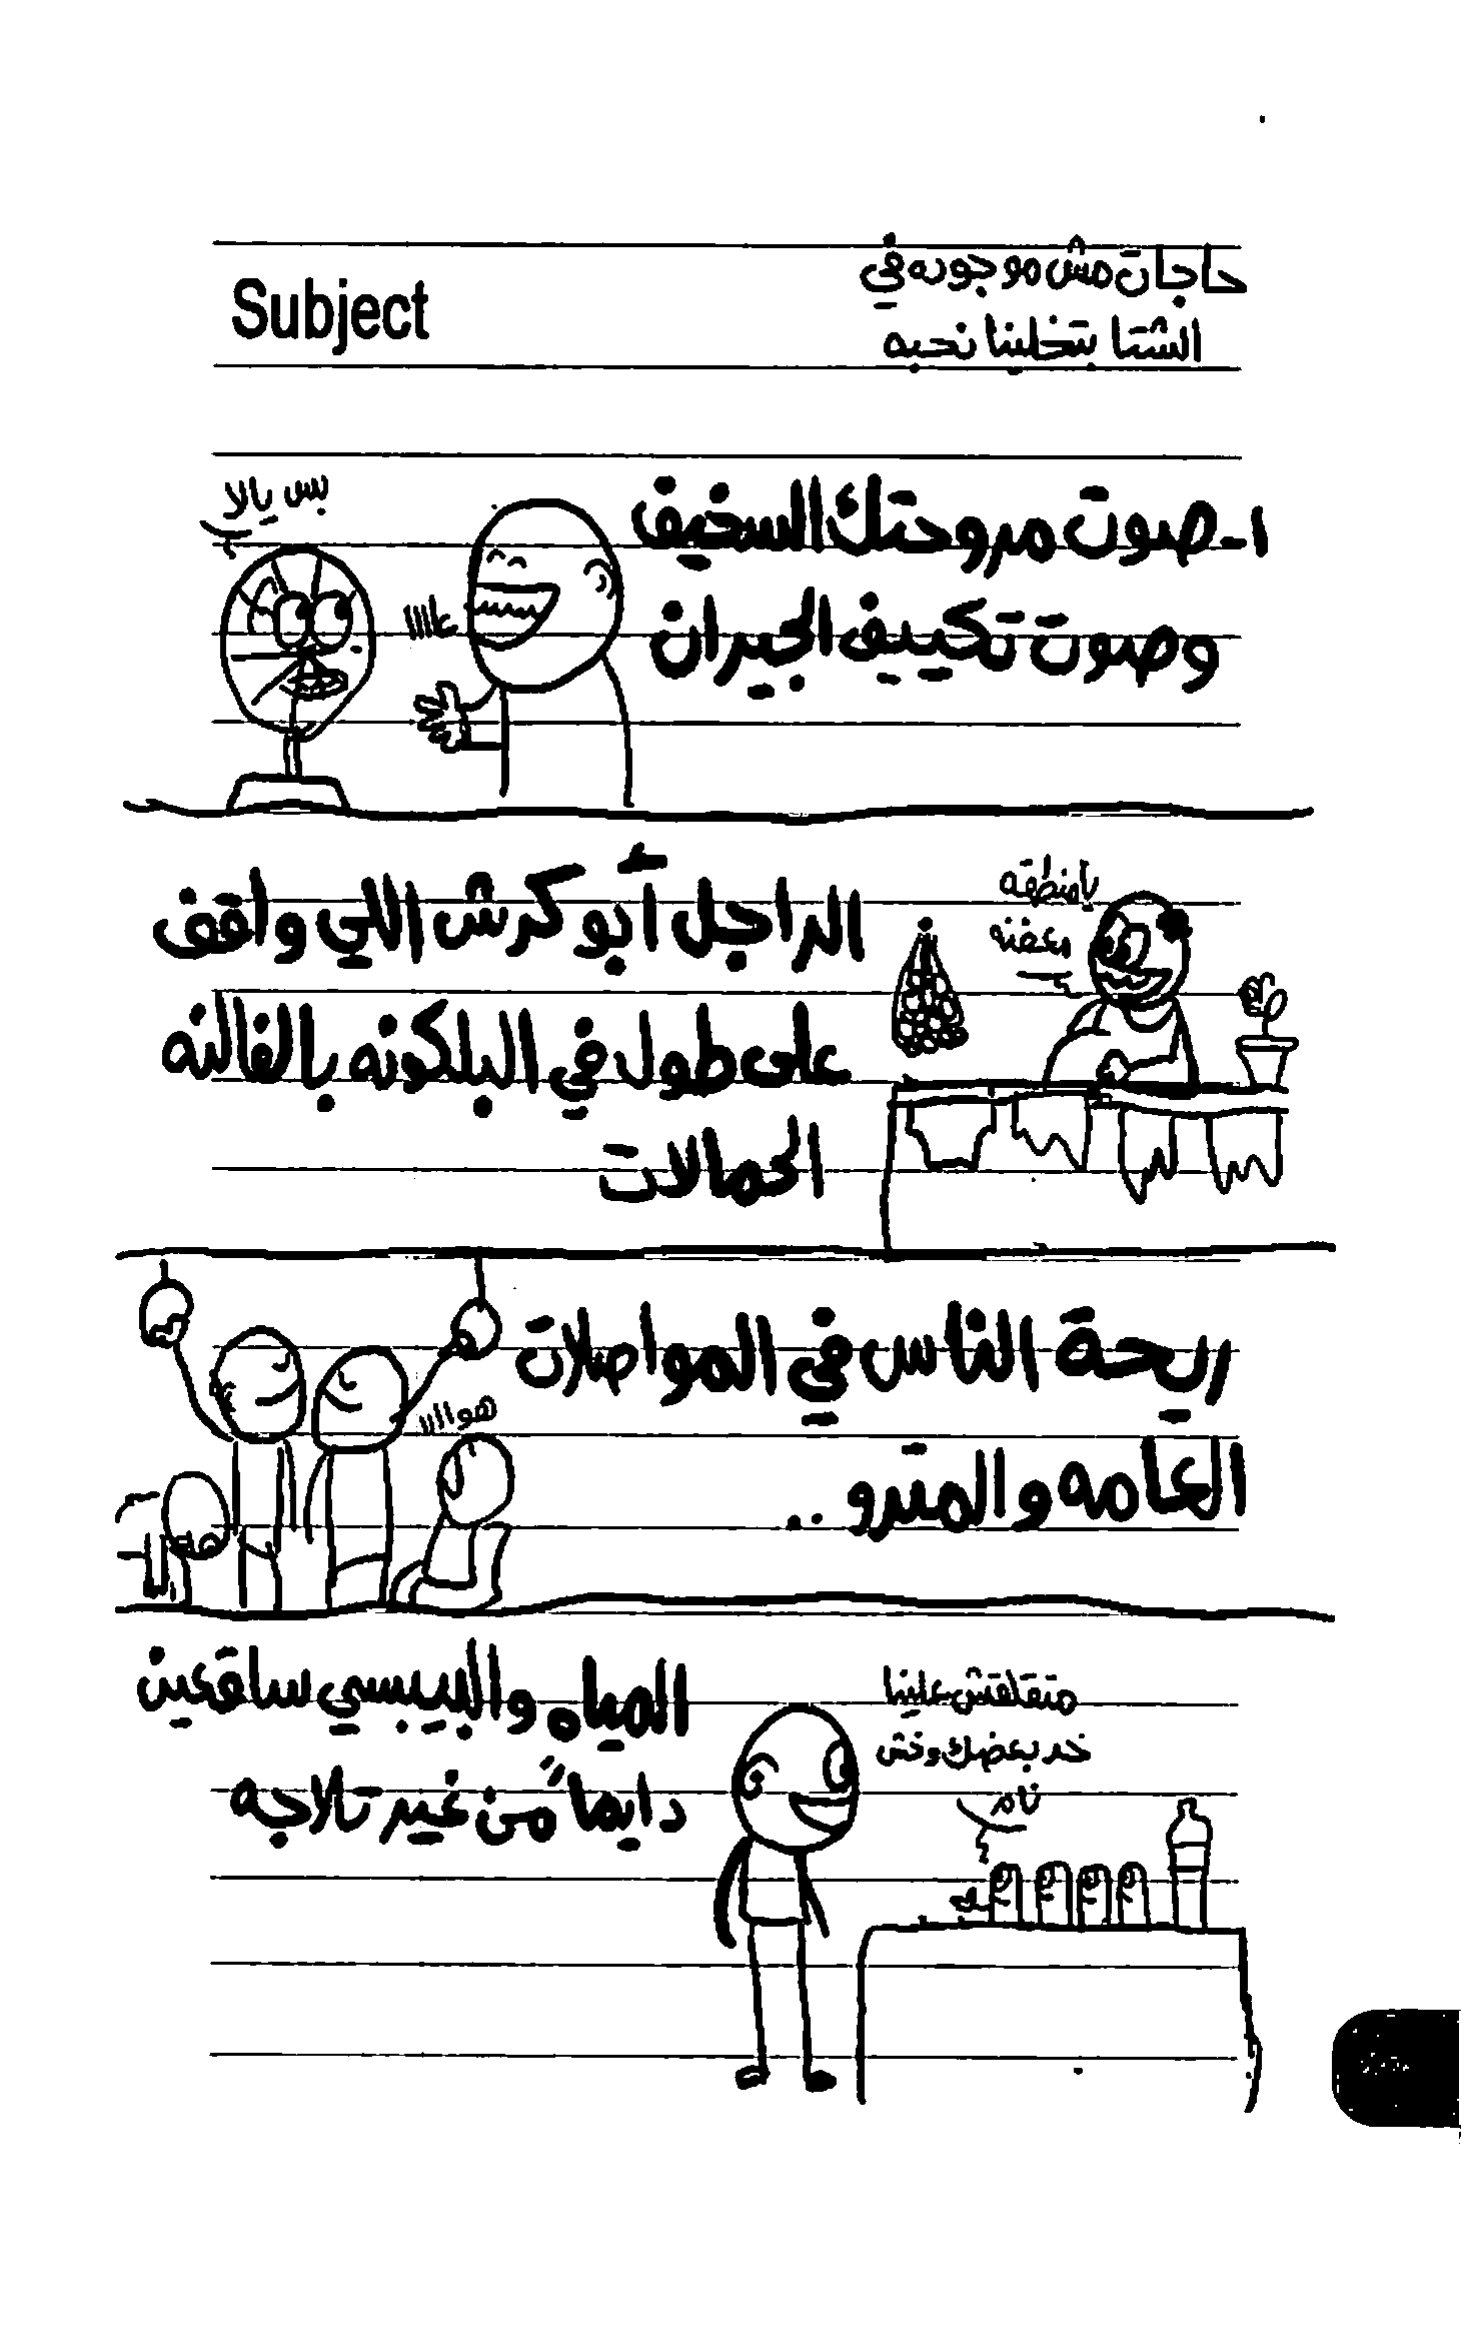 حاجات مش موجوده في
الشتا بتخلينا نحبه
Subject
١- صوت مروحتك السخيف
وصوت تكييف الجيران
بس يالا
عاااا
الراجل أبو كرش اللي واقف
على طول في البلكونه بالفانله
الحمالات
يا منطقه
معفنه
ريحة الناس في المواصلات
العامه والمترو ..
هوااا
المياه والبيبسي ساقعين
دايماً من غير تلاجه
متقلقش علينا
خد بعضك وخش
نام